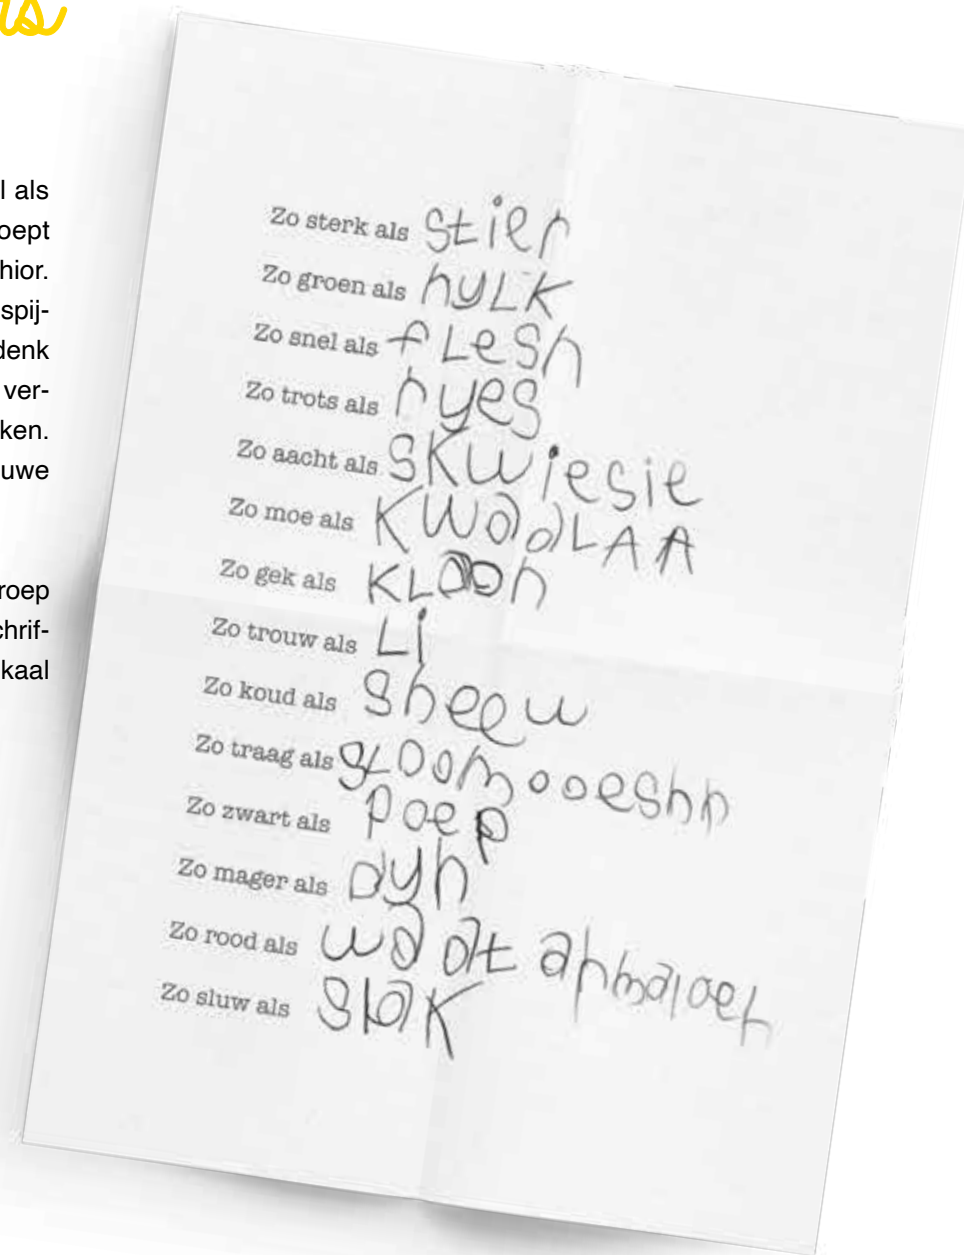 ls
l als
oept
hior.
spij-
denk
ver-
ken.
uwe
roep
chrif-
kaal
Zo sterk als stier
Zo groen als hyLK
Zo snel als fLesh
Zo trots als hyes
Zo aacht als SKWiesie
Zo moe als KWaaLAA
Zo gek als KLoon
Zo trouw als Li
Zo koud als sneeuw
Zo traag als
Zo zwart als poep
Zo mager als dyn
Zo rood als
Zo sluw als slaK